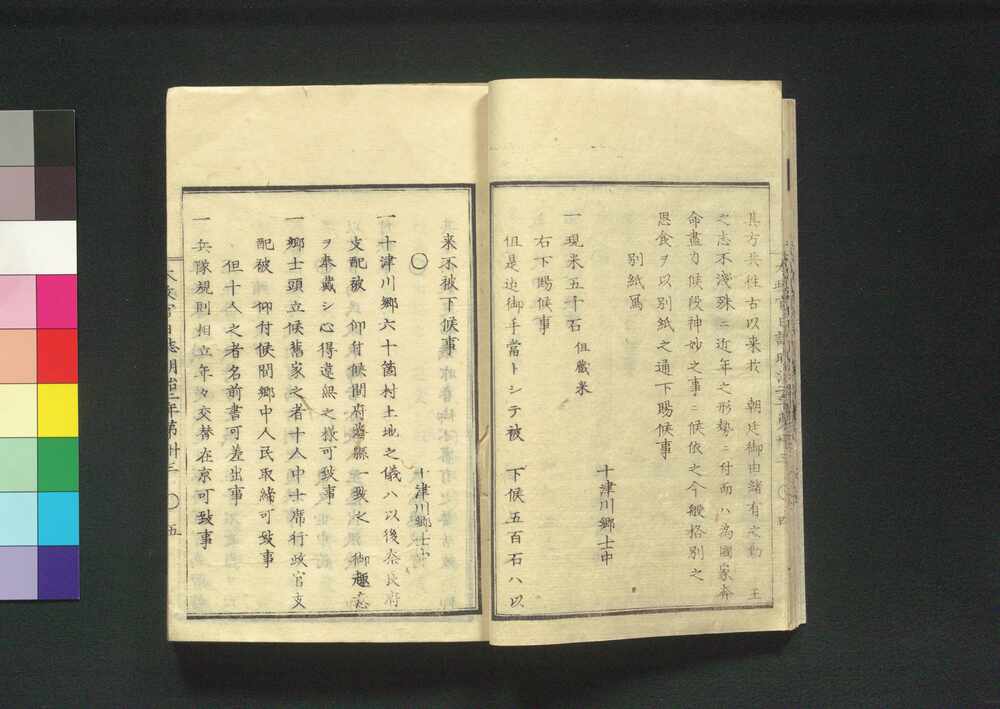 其方共往古以来我　朝廷御由緒有之勤　王
之志不淺殊ニ近年之形勢ニ付而ハ為國家奔
命盡力候段神妙之事ニ候依之今般格別之
思食ヲ以別紙之通下賜候事
別紙寫
十津川郷士中
一現米五千石　但藏米
右下賜候事
但是迄御手當トシテ被　下候五百石ハ以
来不被下候事
〇　十津川郷士中
一十津川郷六十箇村土地之儀ハ以後奈良府
支配被　仰付候間府藩縣一致之　御趣意
ヲ奉戴シ心得違無之様可致事
一郷士頭立候舊家之者十人中士席行政官支
配被　仰付候間郷中人民取締可致事
但十人之者名前書可差出事
一兵隊規則相立年々交替在京可致事
太政官日誌明治二年第卅三　〇　五